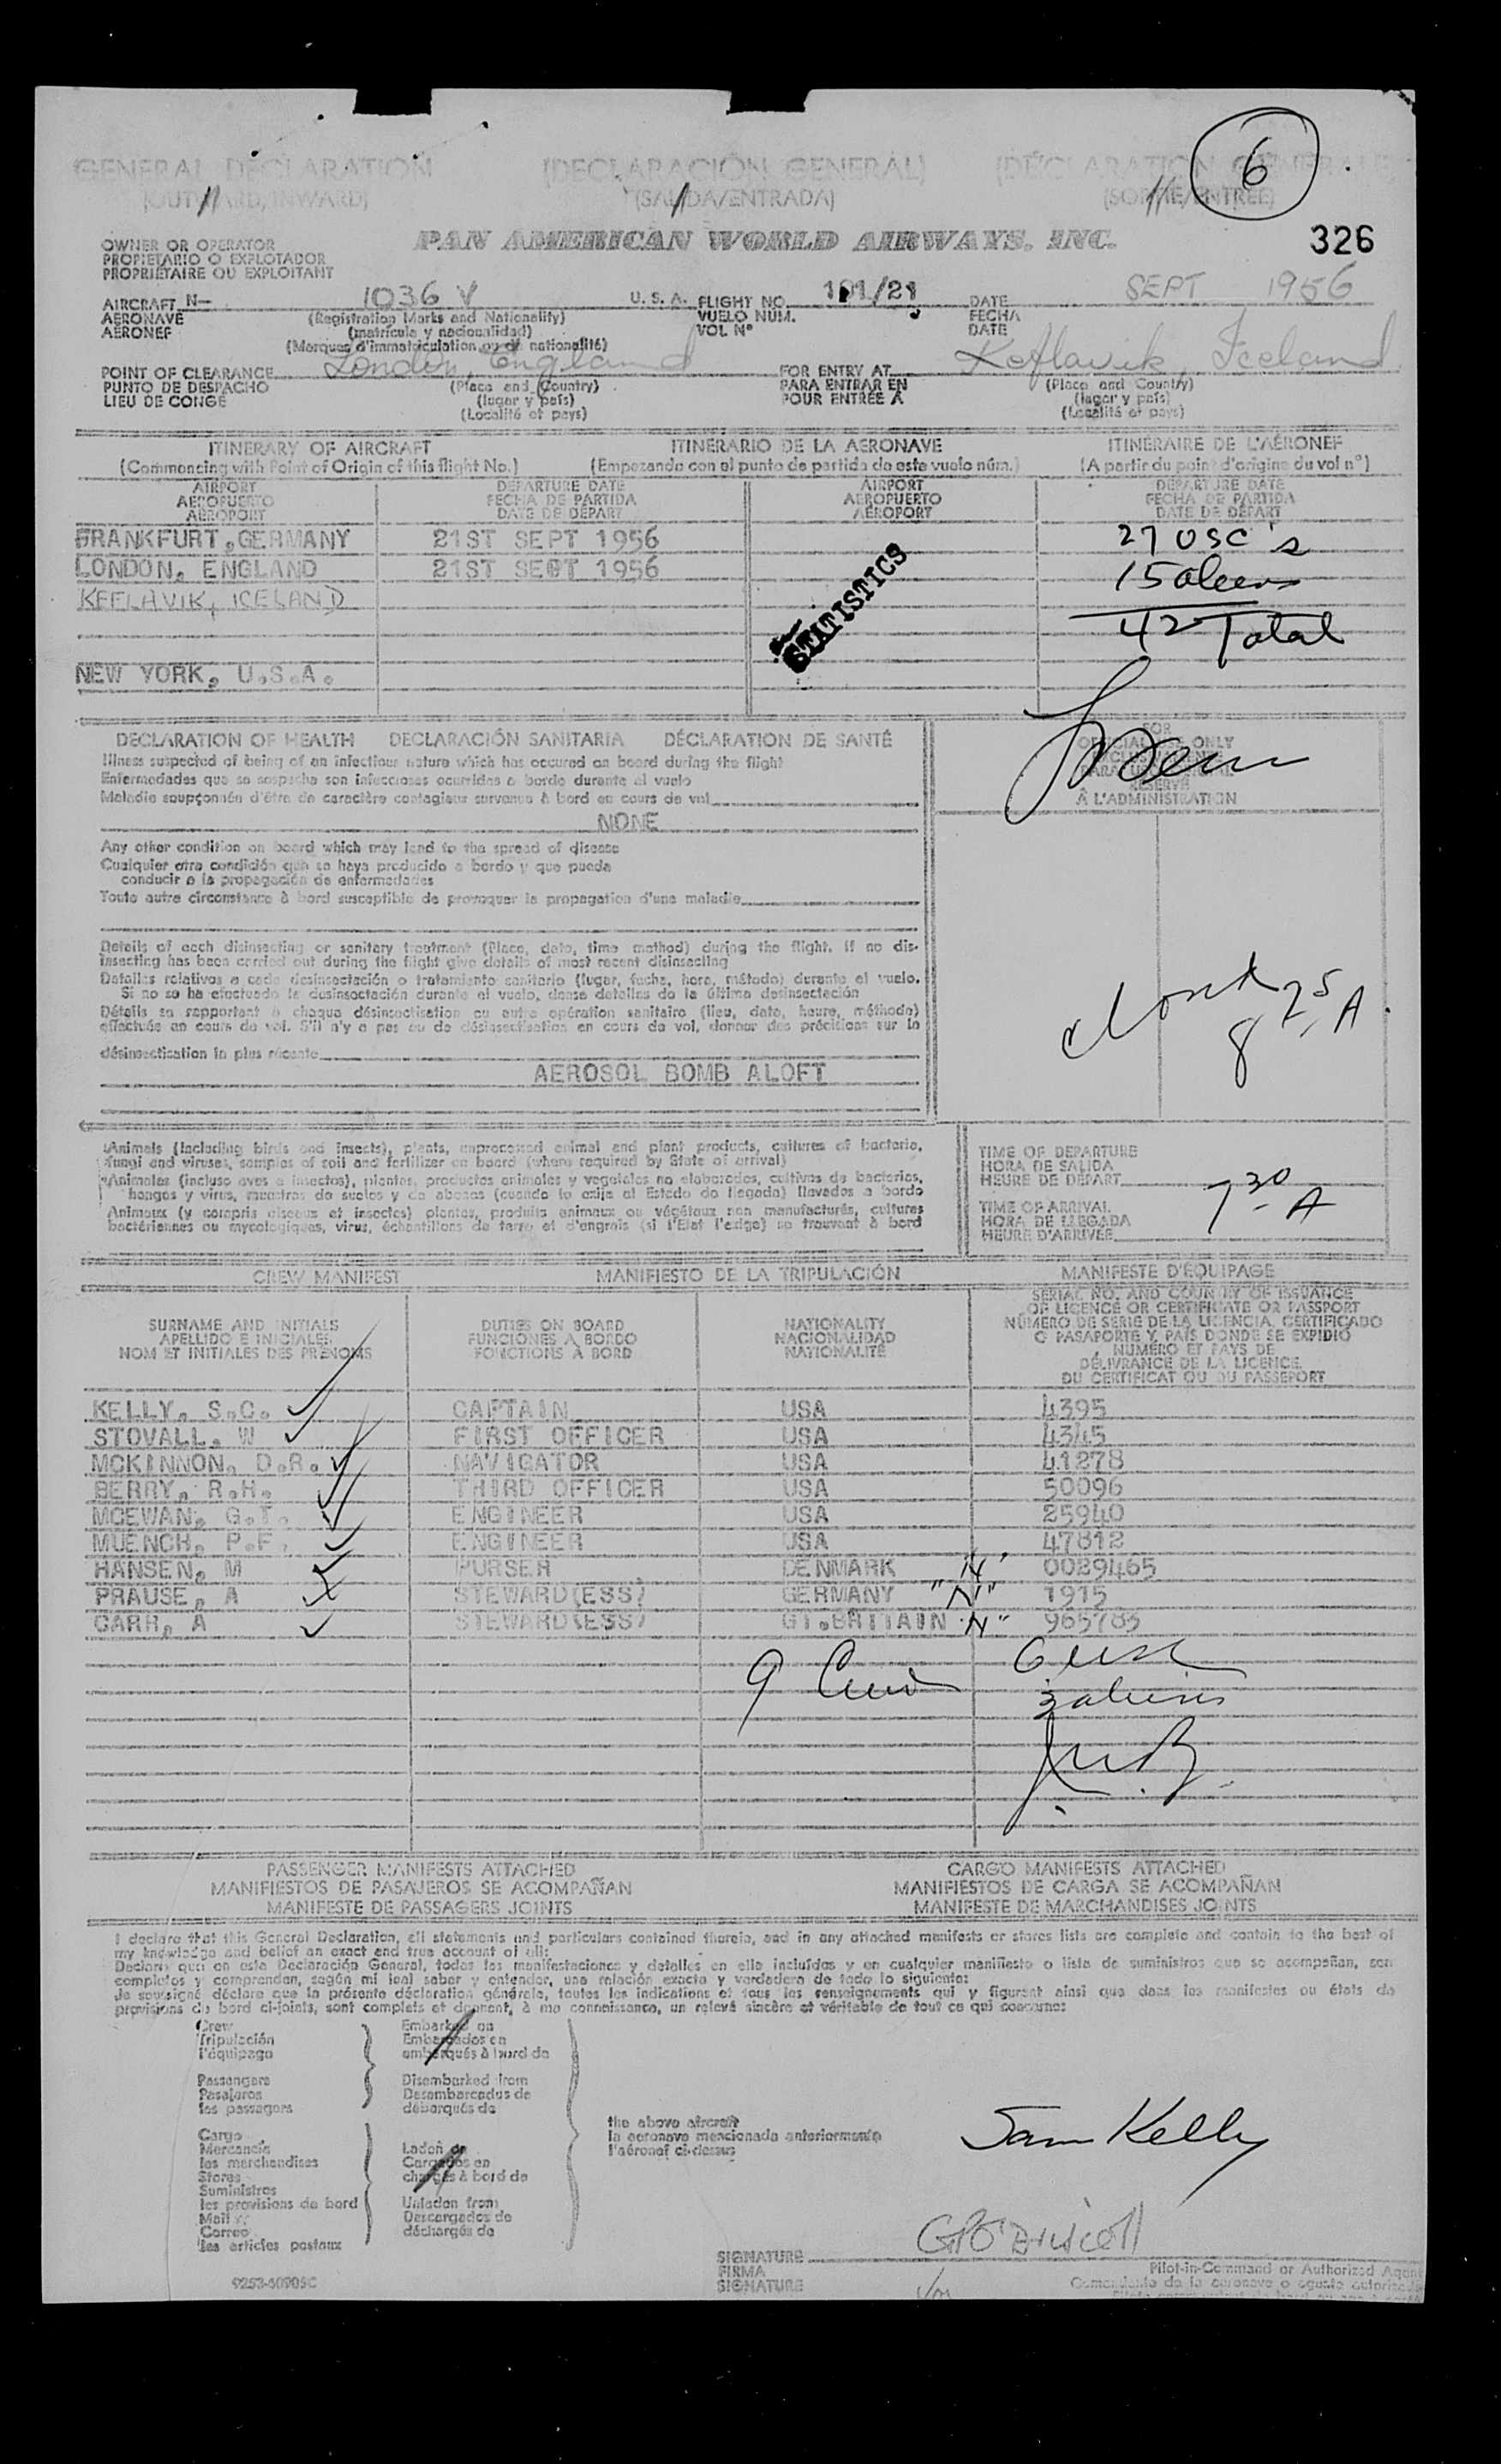 6
GENERAL DECLARATION (DECLARACIÓN GENERAL) (DÉCLARATION GENERALE)
(OUTWARD/INWARD) (SALIDA/ENTRADA) (SORTIE/ENTREE)
326
OWNER OR OPERATOR PAN AMERICAN WORLD AIRWAYS, INC.
PROPIETARIO O EXPLOTADOR
PROPRIÉTAIRE OU EXPLOITANT
AIRCRAFT N- 1036 V U. S. A. FLIGHT NO. 101/21 DATE SEPT 1956
AERONAVE (Registration Marks and Nationality) VUELO NUM. FECHA
AÉRONEF (matrícula y nacionalidad) VOL Nº DATE
(Marques d'immatriculation ou de nationalité)
POINT OF CLEARANCE London, England FOR ENTRY AT Keflavik, Iceland
PUNTO DE DESPACHO (Place and Country) PARA ENTRAR EN (Place and Country)
LIEU DE CONGÉ (lugar y país) POUR ENTRÉE A (lugar y país)
(Localité et pays) (Localité et pays)
ITINERARY OF AIRCRAFT ITINERARIO DE LA AERONAVE ITINÉRAIRE DE L'AÉRONEF
(Commencing with Point of Origin of this flight No.) (Empezando con el punto de partida de este vuelo núm.) (A partir du point d'origine du vol nº)
AIRPORT DEPARTURE DATE AIRPORT DEPARTURE DATE
AEROPUERTO FECHA DE PARTIDA AEROPUERTO FECHA DE PARTIDA
AÉROPORT DATE DE DÉPART AÉROPORT DATE DE DÉPART
FRANKFURT,GERMANY 21ST SEPT 1956 27 USC's
LONDON, ENGLAND 21ST SEPT 1956 15 aliens
KEFLAVIK, ICELAND
42 Total
STATISTICS
NEW YORK, U.S.A.
DECLARATION OF HEALTH DECLARACIÓN SANITARIA DÉCLARATION DE SANTÉ
FOR
OFFICIAL USE ONLY
RESERVÉ
À L'ADMINISTRATION
Illness suspected of being of an infectious nature which has occured on board during the flight
Enfermedades que se sospecha son infecciosas ocurridas a bordo durante el vuelo
Maladie soupçonnée d'être de caractère contagieux survenue à bord en cours de vol
NONE
Any other condition on board which may lead to the spread of disease
Cualquier otra condición que se haya producido a bordo y que pueda
conducir a la propagación de enfermedades
Toute autre circonstance à bord susceptible de provoquer la propagation d'une maladie
Details of each disinsecting or sanitary treatment (Place, date, time method) during the flight. If no dis-
insecting has been carried out during the flight give details of most recent disinsecting
Detalles relativos a cada desinsectación o tratamiento sanitario (lugar, fecha, hora, método) durante el vuelo.
Si no se ha efectuado la desinsectación durante el vuelo, dense detalles de la última desinsectación
Détails se rapportant à chaque désinsectisation ou autre opération sanitaire (lieu, date, heure, méthode)
effectuée en cours de vol. S'il n'y a pas eu de désinsectisation en cours de vol, donner des précisions sur la
désinsectisation la plus récente
8 25 A
AEROSOL BOMB ALOFT
Animals (including birds and insects), plants, unprocessed animal and plant products, cultures of bacteria,
fungi and viruses, samples of soil and fertilizer on board (where required by State of arrival)
Animales (incluso aves e insectos), plantas, productos animales y vegetales no elaborados, cultivos de bacterias,
hongos y virus, muestras de suelos y de abonos (cuando lo exija el Estado de llegada) llevados a bordo
Animaux (y compris oiseaux et insectes) plantes, produits animaux ou végétaux non manufacturés, cultures
bactériennes ou mycologiques, virus, échantillons de terre et d'engrais (si l'Etat l'exige) se trouvant à bord
TIME OF DEPARTURE
HORA DE SALIDA
HEURE DE DÉPART
TIME OF ARRIVAL 7 30 A
HORA DE LLEGADA
HEURE D'ARRIVÉE
CREW MANIFEST MANIFIESTO DE LA TRIPULACIÓN MANIFESTE D'ÉQUIPAGE
SURNAME AND INITIALS DUTIES ON BOARD NATIONALITY
APELLIDO E INICIALES FUNCIONES A BORDO NACIONALIDAD
NOM ET INITIALES DES PRÉNOMS FONCTIONS À BORD NATIONALITÉ
SERIAL NO. AND COUNTRY OF ISSUANCE
OF LICENCE OR CERTIFICATE OR PASSPORT
NÚMERO DE SERIE DE LA LICENCIA, CERTIFICADO
O PASAPORTE Y PAÍS DONDE SE EXPIDIÓ
NUMÉRO ET PAYS DE
DÉLIVRANCE DE LA LICENCE
DU CERTIFICAT OU DU PASSEPORT
KELLY, S.C. CAPTAIN USA 4395
STOVALL, W FIRST OFFICER USA 4345
MCKINNON, D.R. NAVIGATOR USA 41278
BERRY, R.H. THIRD OFFICER USA 50096
MCEWAN, G.T. ENGINEER USA 25940
MUENCH, P.F. ENGINEER USA 47812
HANSEN, M PURSER DENMARK "N" 0029465
PRAUSE, A STEWARD(ESS) GERMANY "N" 1915
CARR, A STEWARD(ESS) GT.BRITAIN "N" 965783
9 Crew 6 usc
3 aliens
PASSENGER MANIFESTS ATTACHED CARGO MANIFESTS ATTACHED
MANIFIESTOS DE PASAJEROS SE ACOMPAÑAN MANIFIESTOS DE CARGA SE ACOMPAÑAN
MANIFESTE DE PASSAGERS JOINTS MANIFESTE DE MARCHANDISES JOINTS
I declare that this General Declaration, all statements and particulars contained therein, and in any attached manifests or stores lists are complete and contain to the best of
my knowledge and belief an exact and true account of all:
Declaro que en esta Declaración General, todas las manifestaciones y detalles en ella incluídos y en cualquier manifiesto o lista de suministros que se acompañan, son
completos y comprenden, según mi leal saber y entender, una relación exacta y verdadera de todo lo siguiente:
Je soussigné déclare que la présente déclaration générale, toutes les indications et tous les renseignements qui y figurent ainsi que dans les manifestes ou états de
provisions de bord ci-joints, sont complets et donnent, à ma connaissance, un relevé sincère et véritable de tout ce qui concerne:
Crew Embarked on
Tripulación Embarcados en
l'équipage embarqués à bord de
Passengers Disembarked from
Pasajeros Desembarcados de
les passagers débarqués de
the above aircraft
la aeronave mencionada anteriormente
l'aéronef ci-dessus
Sam Kelly
Cargo
Mercancía Laden on
les marchandises Cargados en
Stores chargés à bord de
Suministros
les provisions de bord Unladen from
Mail Descargados de
Correo déchargés de
les articles postaux
G.P. O'Driscoll
SIGNATURE
FIRMA
SIGNATURE
Pilot-in-Command or Authorized Agent
Comandante de la aeronave o agente autorizado
9253-60905C